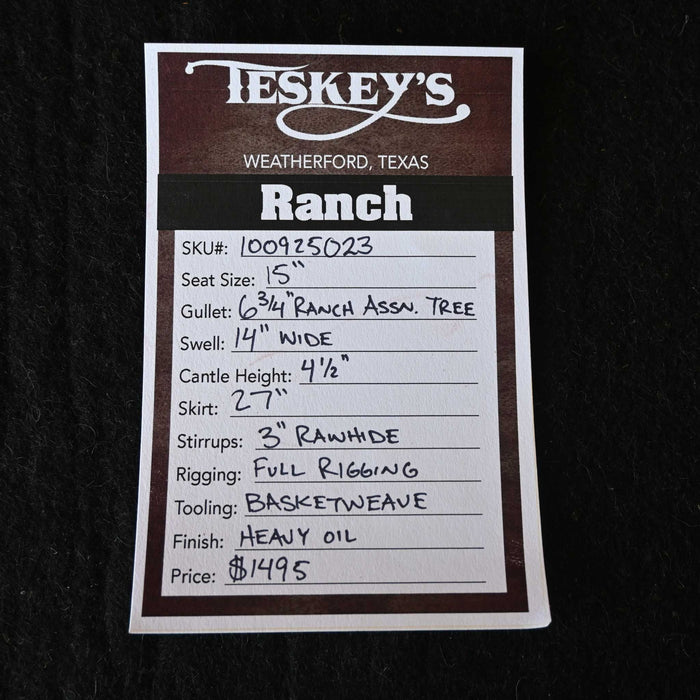 TESKEY'S
WEATHERFORD, TEXAS
Ranch
SKU#: 100925023
Seat Size: 15"
Gullet: 6 3/4" RANCH ASSN. TREE
Swell: 14" WIDE
Cantle Height: 4 1/2"
Skirt: 27"
Stirrups: 3" RAWHIDE
Rigging: FULL RIGGING
Tooling: BASKETWEAVE
Finish: HEAVY OIL
Price: $1495